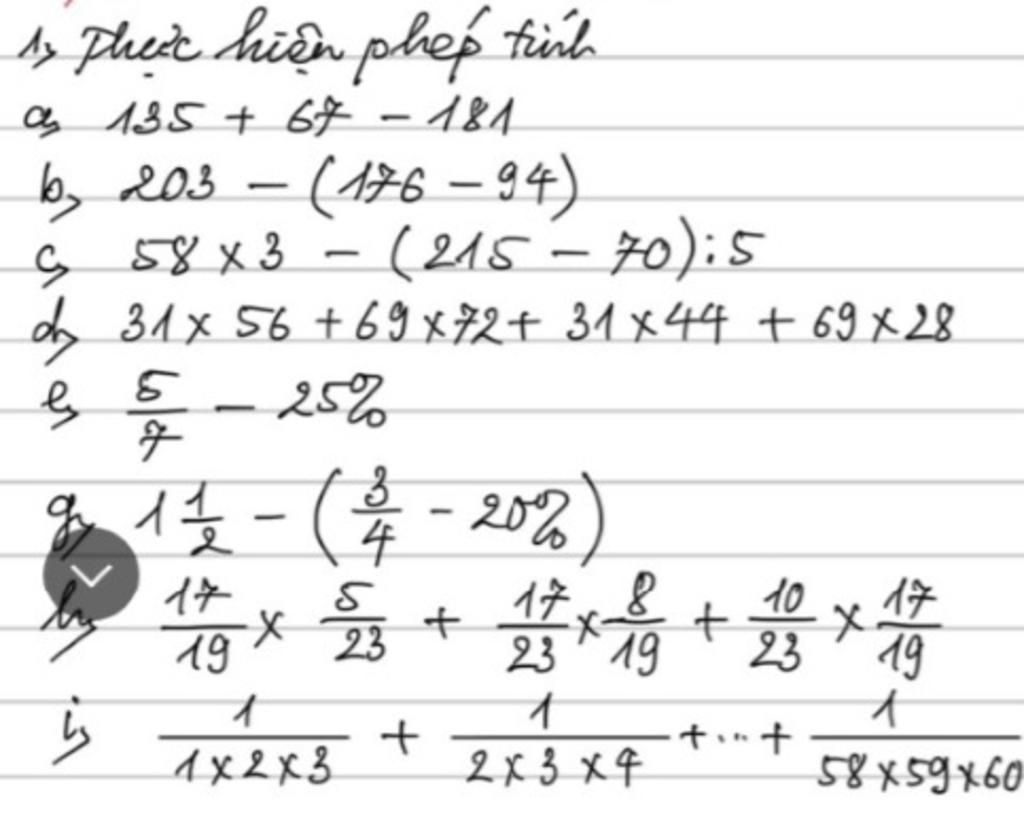 1, Thực hiện phép tính
a, 135 + 67 - 181
b, 203 - (176 - 94)
c, 58 x 3 - (215 - 70) : 5
d, 31 x 56 + 69 x 72 + 31 x 44 + 69 x 28
e, 5/7 - 25%
g, 1 1/2 - (3/4 - 20%)
h, 17/19 x 5/23 + 17/23 x 8/19 + 10/23 x 17/19
i, 1/(1 x 2 x 3) + 1/(2 x 3 x 4) + ... + 1/(58 x 59 x 60)